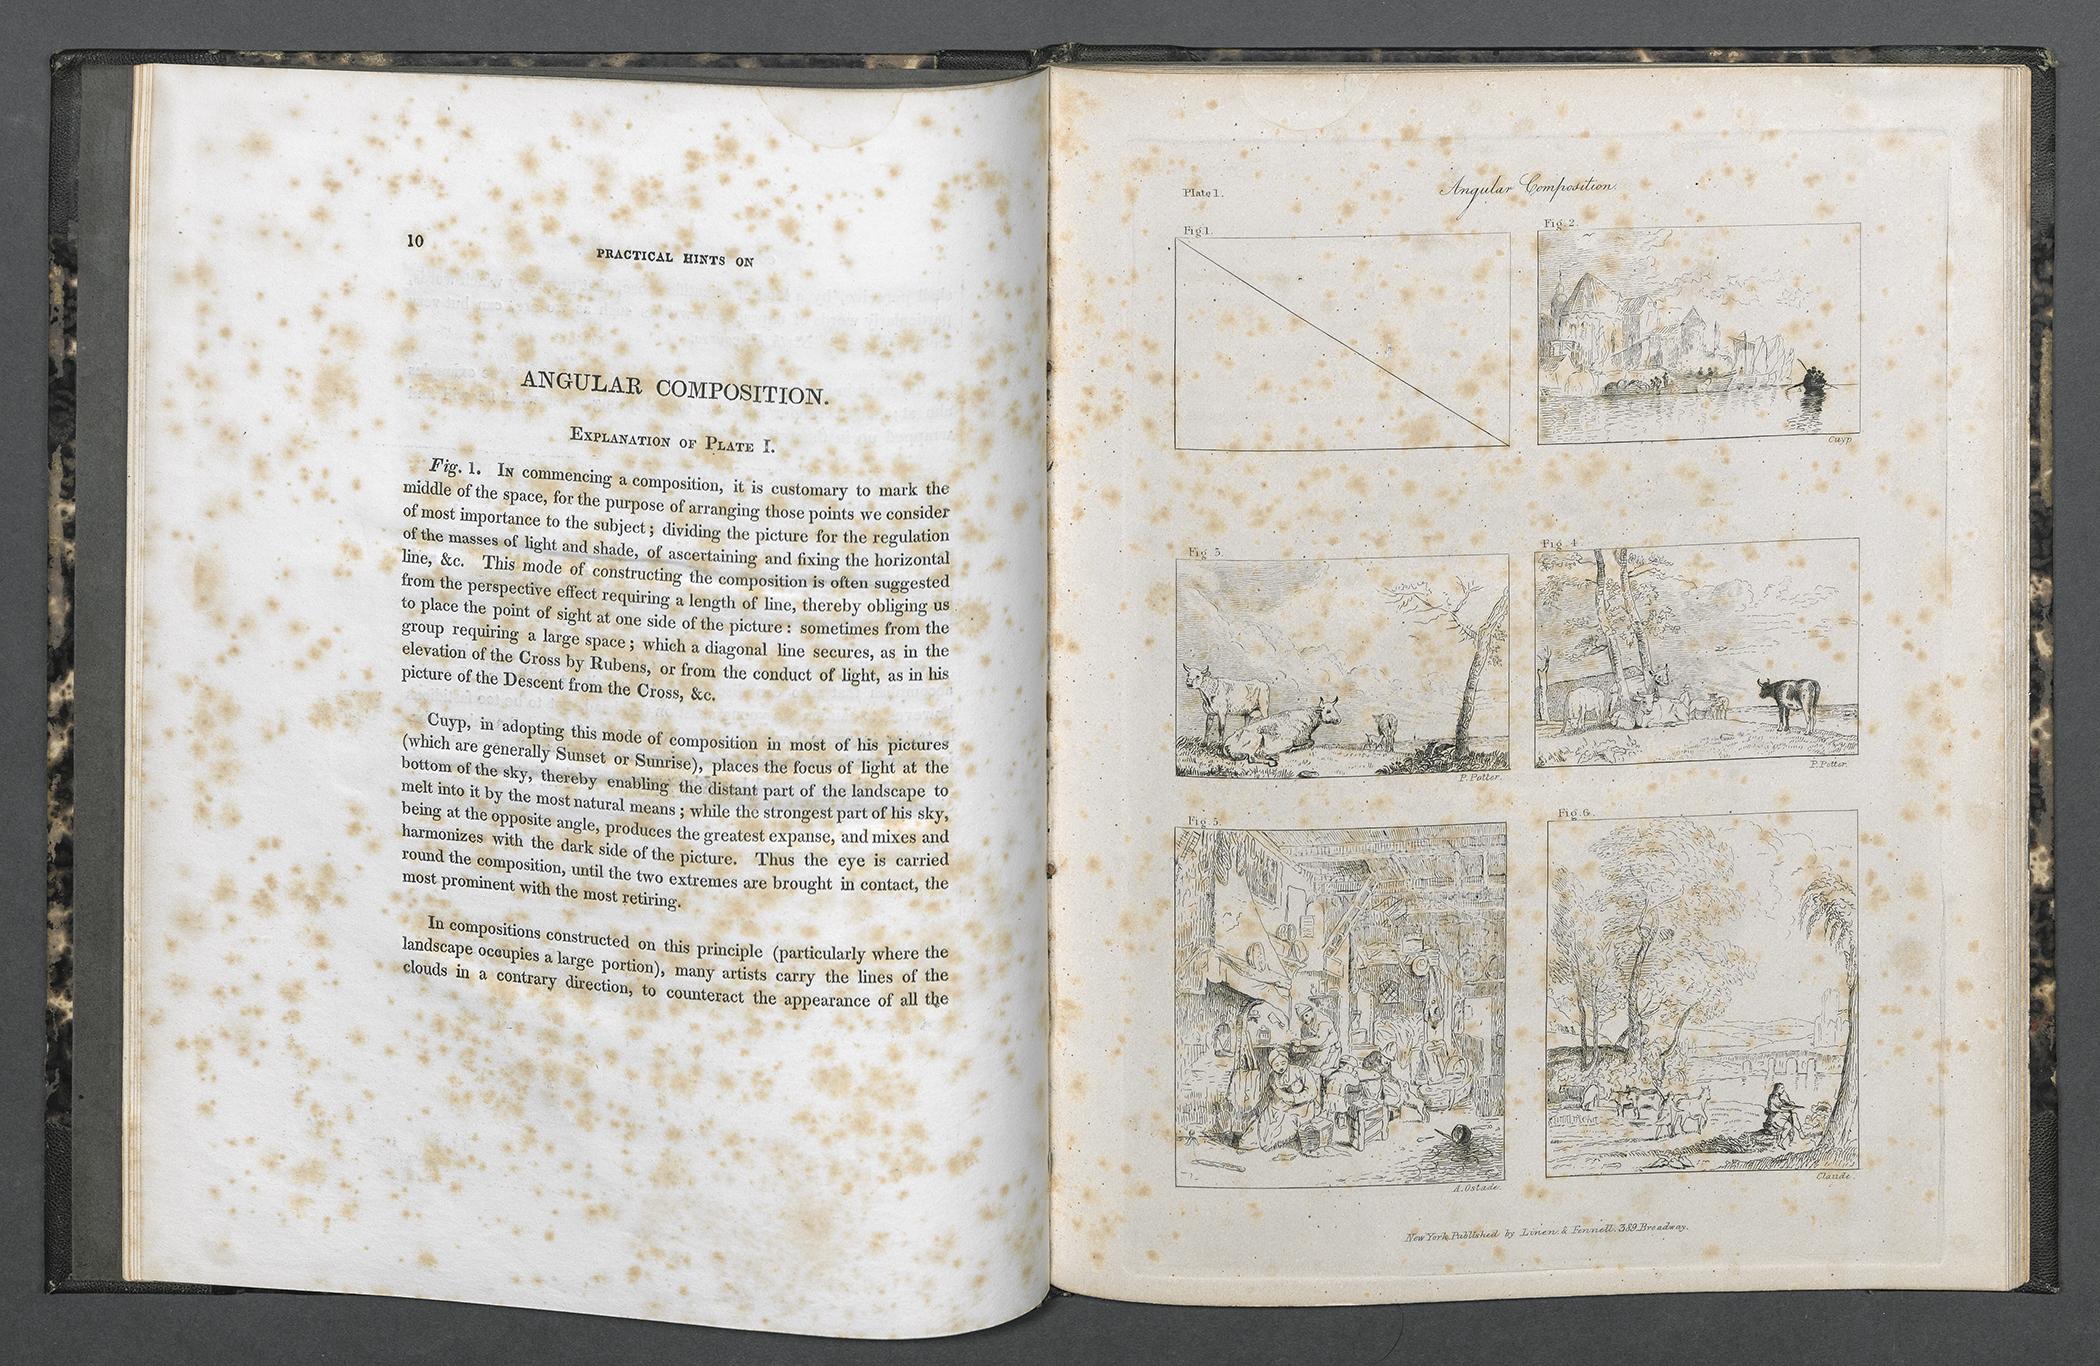 10
PRACTICAL HINTS ON
ANGULAR COMPOSITION.
EXPLANATION OF PLATE I.
Fig. 1. IN commencing a composition, it is customary to mark the
middle of the space, for the purpose of arranging those points we consider
of most importance to the subject; dividing the picture for the regulation
of the masses of light and shade, of ascertaining and fixing the horizontal
line, &c. This mode of constructing the composition is often suggested
from the perspective effect requiring a length of line, thereby obliging us
to place the point of sight at one side of the picture: sometimes from the
group requiring a large space; which a diagonal line secures, as in the
elevation of the Cross by Rubens, or from the conduct of light, as in his
picture of the Descent from the Cross, &c.
Cuyp, in adopting this mode of composition in most of his pictures
(which are generally Sunset or Sunrise), places the focus of light at the
bottom of the sky, thereby enabling the distant part of the landscape to
melt into it by the most natural means; while the strongest part of his sky,
being at the opposite angle, produces the greatest expanse, and mixes and
harmonizes with the dark side of the picture. Thus the eye is carried
round the composition, until the two extremes are brought in contact, the
most prominent with the most retiring.
In compositions constructed on this principle (particularly where the
landscape occupies a large portion), many artists carry the lines of the
clouds in a contrary direction, to counteract the appearance of all the
Plate 1.
Angular Composition.
Fig 1.
Fig 2.
Cuyp
Fig 3.
P. Potter.
Fig 4
P. Potter.
Fig 5.
A. Ostade.
Fig 6.
Claude.
New York Published by Linen & Fennell. 389 Broadway.